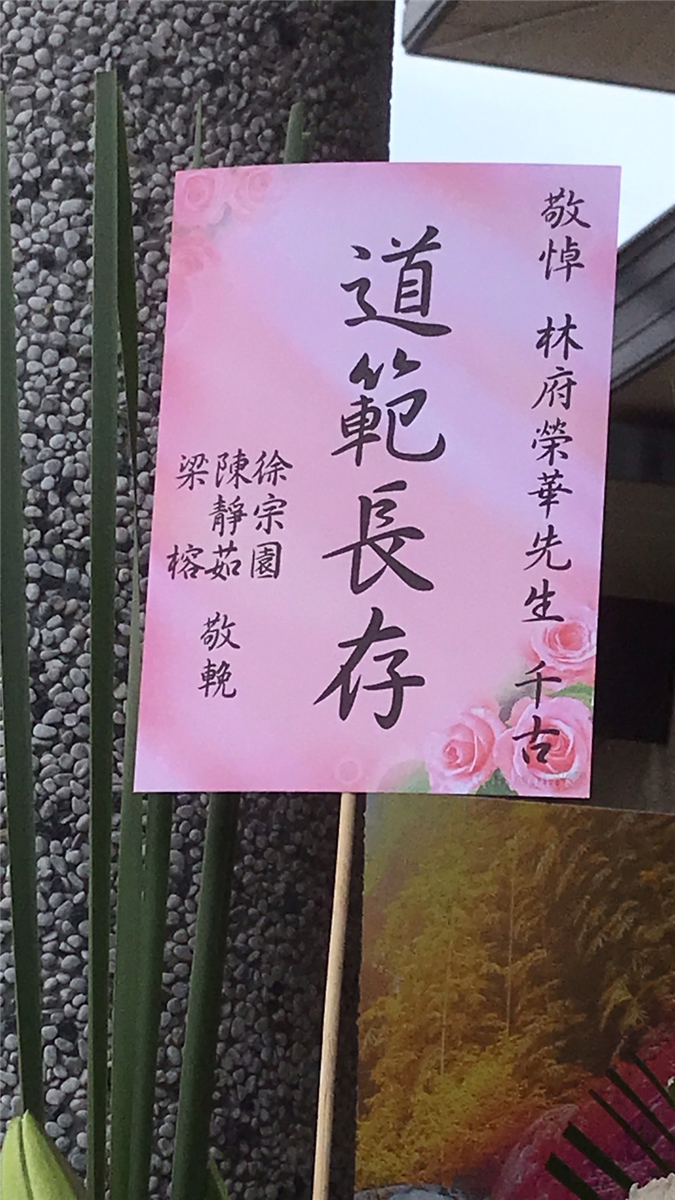 敬悼 林府榮華先生 千古
道範長存
徐宗園
陳靜茹
梁榕
敬輓